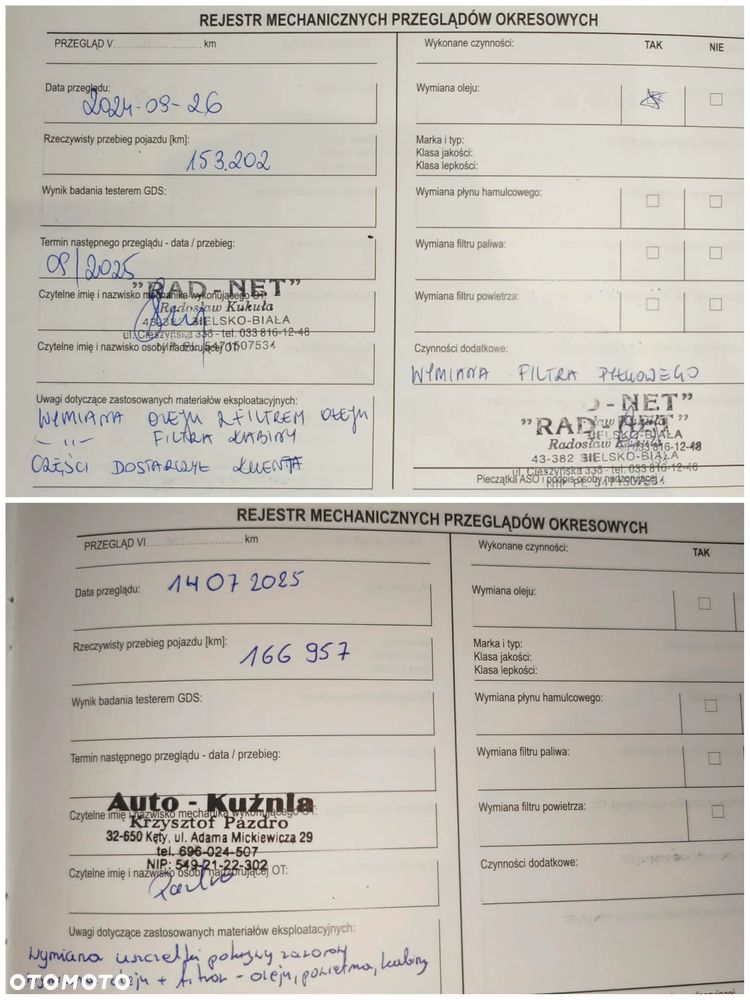 REJESTR MECHANICZNYCH PRZEGLĄDÓW OKRESOWYCH
PRZEGLĄD V.............................. km
Data przeglądu:
2024-09-26
Rzeczywisty przebieg pojazdu [km]:
153.202
Wynik badania testerem GDS:
Termin następnego przeglądu - data / przebieg:
09/2025
Czytelne imię i nazwisko mechanika wykonującego OT:
"RAD-NET"
Radosław Kukuła
43-382 BIELSKO-BIAŁA
ul. Cieszyńska 336 - tel. 033 816-12-48
Czytelne imię i nazwisko osoby nadzorującej OT:
Uwagi dotyczące zastosowanych materiałów eksploatacyjnych:
WYMIANA OLEJU Z FILTREM OLEJU
-"- FILTRA KABINY
CZĘŚCI DOSTARCZYŁ KLIENT
Wykonane czynności: TAK NIE
Wymiana oleju:
Marka i typ:
Klasa jakości:
Klasa lepkości:
Wymiana płynu hamulcowego:
Wymiana filtru paliwa:
Wymiana filtru powietrza:
Czynności dodatkowe:
WYMIANA FILTRA PYŁKOWEGO
"RAD-NET"
Radosław
43-382 BIELSKO-BIAŁA
ul. Cieszyńska 336 - tel. 033 816-12-48
Pieczątka ASO i podpis osoby nadzorującej
REJESTR MECHANICZNYCH PRZEGLĄDÓW OKRESOWYCH
PRZEGLĄD VI.............................. km
Data przeglądu:
14 07 2025
Rzeczywisty przebieg pojazdu [km]:
166 957
Wynik badania testerem GDS:
Termin następnego przeglądu - data / przebieg:
Czytelne imię i nazwisko mechanika wykonującego OT:
Auto - Kuźnia
Krzysztof Pazdro
32-650 Kęty, ul. Adama Mickiewicza 29
tel. 696-024-507
NIP: 549-21-22-302
Czytelne imię i nazwisko osoby nadzorującej OT:
Pazdro
Uwagi dotyczące zastosowanych materiałów eksploatacyjnych:
Wymiana uszczelki pokrywy zaworów
oleju + filtrów - oleju, powietrza, kabiny
Wykonane czynności: TAK
Wymiana oleju:
Marka i typ:
Klasa jakości:
Klasa lepkości:
Wymiana płynu hamulcowego:
Wymiana filtru paliwa:
Wymiana filtru powietrza:
Czynności dodatkowe:
OTOMOTO